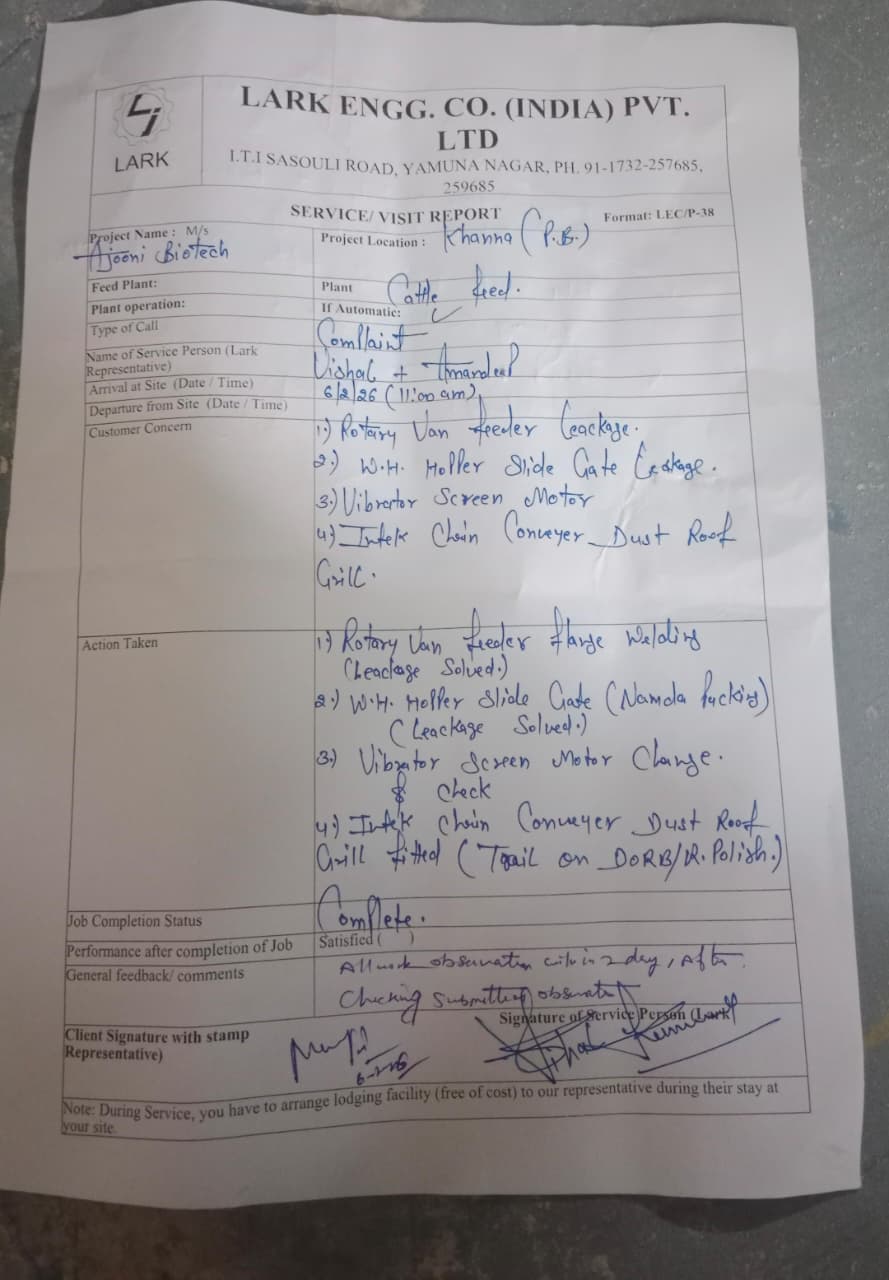 LARK
LARK ENGG. CO. (INDIA) PVT.
LTD
I.T.I SASOULI ROAD, YAMUNA NAGAR, PH. 91-1732-257685,
259685
SERVICE/ VISIT REPORT Format: LEC/P-38
Project Name : M/s
Ajooni Biotech
Project Location : Khanna (P.B.)
Feed Plant: Plant Cattle feed.
Plant operation: If Automatic: ✓
Type of Call Complaint
Name of Service Person (Lark
Representative) Vishal + Amandeep
Arrival at Site (Date / Time) 6/2/26 (11:00 am)
Departure from Site (Date / Time)
Customer Concern 1.) Rotary Van feeder Leackage.
2.) W.H. Hopper Slide Gate Leakage.
3.) Vibrator Screen Motor
4.) Intek Chain Conveyer Dust Roof
Grill.
Action Taken 1.) Rotary Van feeder flange Welding
(Leackage Solved.)
2.) W.H. Hopper Slide Gate (Namda Packing)
(Leackage Solved.)
3.) Vibrator Screen Motor Change.
& Check
4.) Intek Chain Conveyer Dust Roof
Grill fitted (Trail on DORB/R.Polish.)
Job Completion Status Complete.
Performance after completion of Job Satisfied ( )
General feedback/ comments All work observation in 2 day, After
Checking Submitted observation
Signature of Service Person (Lark
Client Signature with stamp
Representative)
Note: During Service, you have to arrange lodging facility (free of cost) to our representative during their stay at
your site.